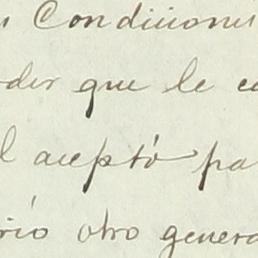 s Condiciones
der que le co
l aceptó pa
rió otro genera